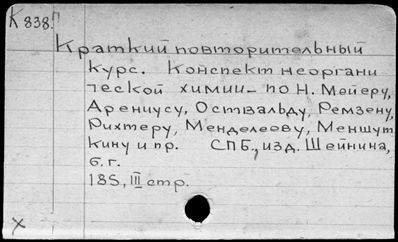 К 838.П
Краткий повторительный
курс. Конспект неоргани
ческой химии – по Н. Мейеру,
Арениусу, Оствальду, Ремзену,
Рихтеру, Менделеову, Меншут
кину и пр. СПБ., изд. Шейнина,
б. г.
185, III стр.
х